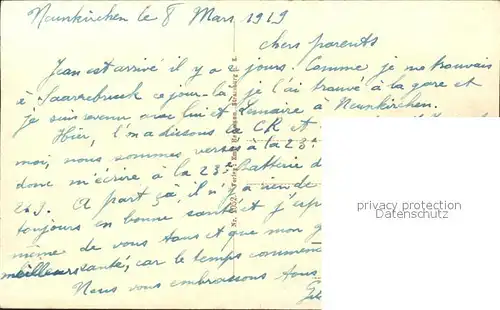 Neunkirchen le 8 Mars 1919
chers parents
Jean est arrivé il y a jours. Comme je me trouvais
à Saarrebruck ce jour-là, je l'ai trouvé à la gare et
je suis revenu avec lui et Lemaire à Neunkirchen.
Hier, l'm a dissous la CR et
moi, nous sommes versés à la 23e
donc m'écrire à la 23e Batterie d
269. A part ça, il n'y a rien de
toujours en bonne santé et j'esp
même de vous tous et que mon g
meilleure santé, car le temps commenc
Nous vous embrassons tous
privacy protection
www.oldthing.com